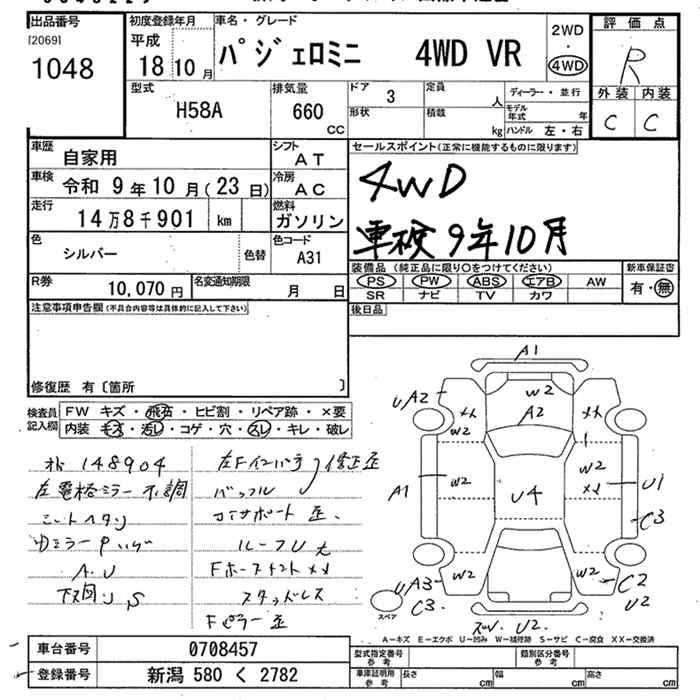 出品番号
[2069]
1048
初度登録年月
平成
18 10 月
車名・グレード
パジェロミニ 4WD VR
2WD
・
4WD
評価点
R
外装 内装
C C
型式
H58A
排気量
660
CC
ドア
3
定員
人
形状
積載
kg
ディーラー・並行
モデル年式 年
ハンドル 左・右
車歴
自家用
シフト
AT
車検
令和 9 年 10 月 (23 日)
冷房
AC
走行
14万8千901 km
燃料
ガソリン
色
シルバー
色替
色コード
A31
R券
10,070 円
名変通知期限
月 日
セールスポイント(正常に機能するものに限ります)
4WD
車検 9年10月
装備品 (純正品に限り○をつけてください)
PS PW ABS エアB AW
SR ナビ TV カワ
新車保証書
有・無
後日品
注意事項申告欄(不具合内容等は具体的に記入して下さい)
修復歴 有〔箇所 〕
検査員記入欄
FW キズ・飛石・ヒビ割・リペア跡・×要
内装 キズ・汚レ・コゲ・穴・スレ・キレ・破レ
148904
左電格ミラー不調
A.U
下回り S
左Fインパネ 修正歪
バックル
コアサポート 歪
ルーフU 大
スタッドレス
Fピラー歪
A1
UA2
W2
A2
W2
W2
W2
A1
W2
U4
U1
C3
UA3
C3
W2
W2
C2
U2
U2
スペア
A-キズ E-エクボ U-凹み W-補修跡 S-サビ C-腐食 XX-交換済
車台番号
0708457
登録番号
新潟 580 く 2782
型式指定番号
参考
類別区分番号
参考
車庫証明用
参考
長さ cm
幅 cm
高さ cm